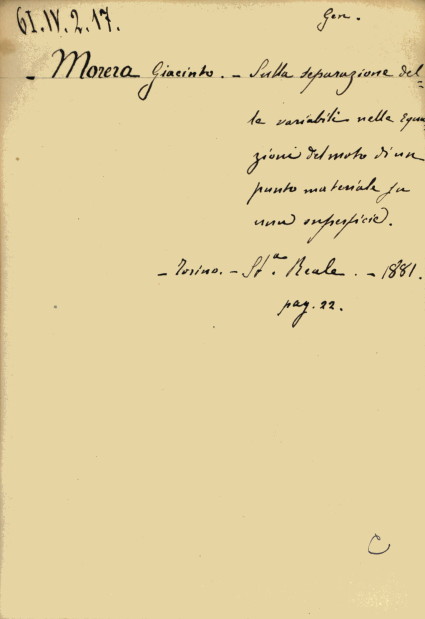 61.IV.2.17.
Gen.
- Morera Giacinto. - Sulla separazione del=
le variabili nelle Equa
zioni del moto di un
punto materiale su
una superficie.
- Torino. - St.ia Reale. - 1881.
pag. 22.
C